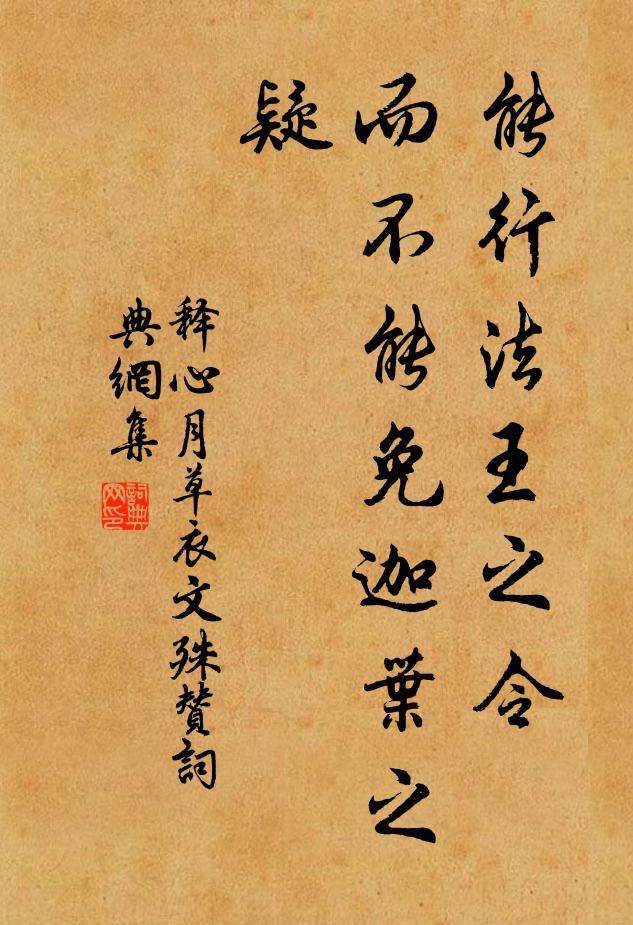 能行法王之令
而不能免迦葉之
疑
释心月草衣文殊贊詞
典網集
詞典
网印